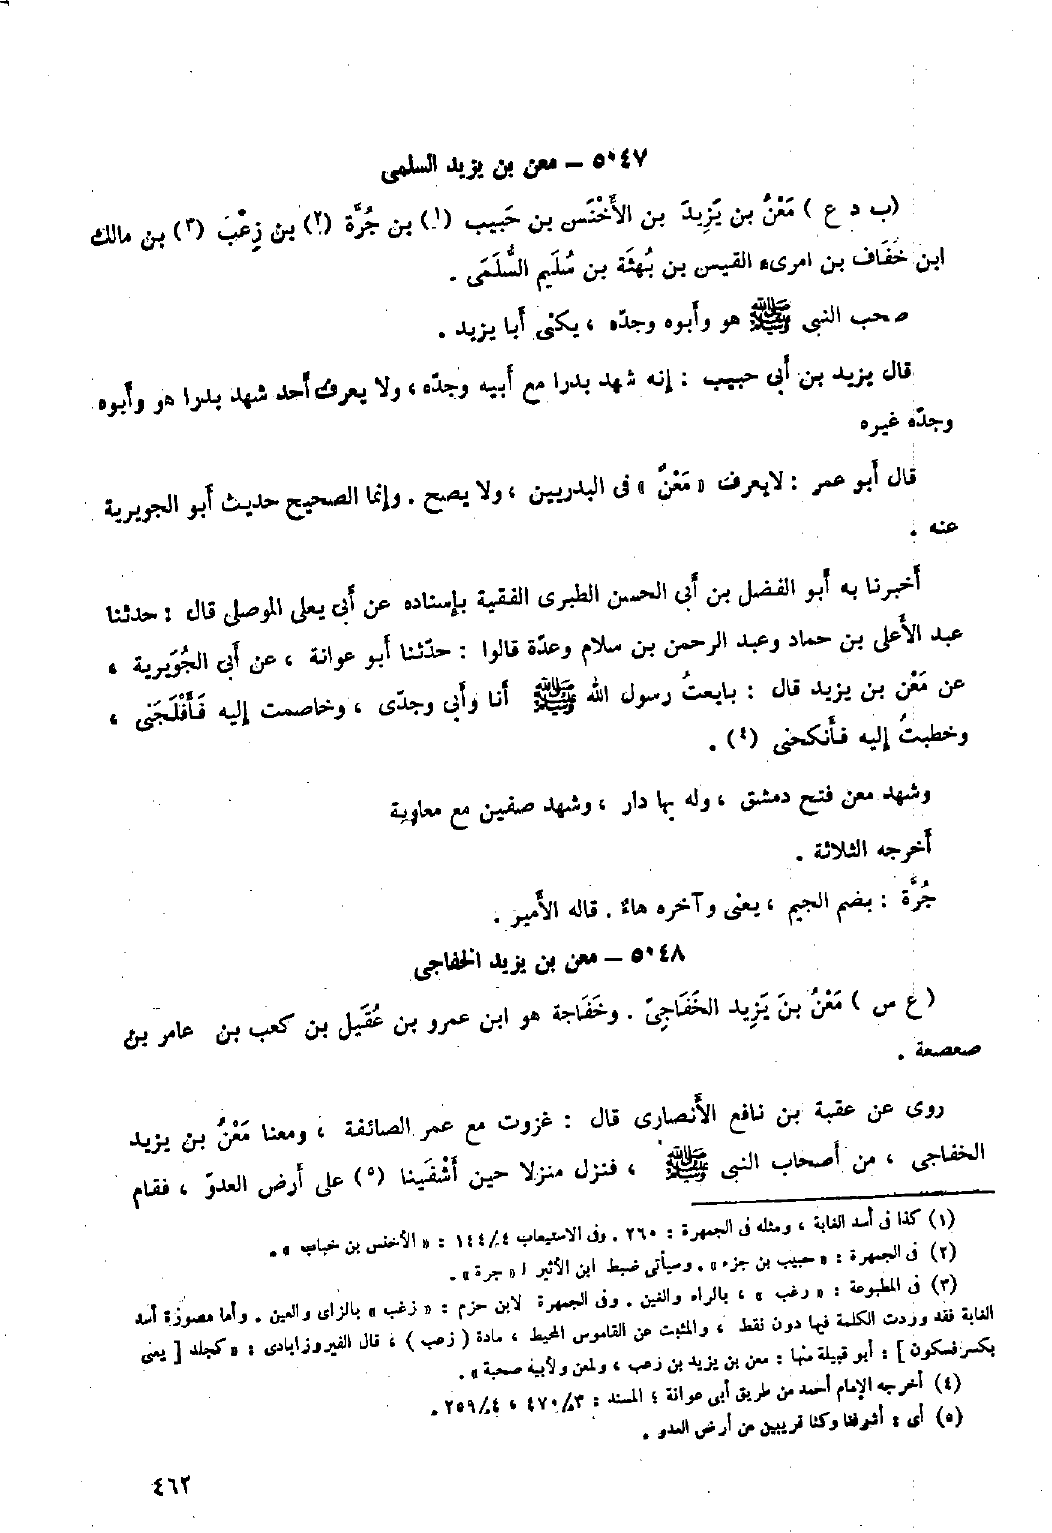 ٥٠٤٧ – معن بن يزيد السلمى
(ب د ع) مَعْنُ بن يَزِيدَ بن الأَخْنَس بن حَبيب (١) بن جُرَّة (٢) بن زِعْبَ (٣) بن مالك
ابن خَفَاف بن امرىء القيس بن بُهثَة بن سُلَيم السُّلَمَى .
صحب النبى ﷺ هو وأَبوه وجدّه ، يكنى أَبا يزيد .
قال يزيد بن أَبى حبيب : إنه شهد بدرا مع أَبيه وجدّه ، ولا يعرف أَحد شهد بدرا هو وأَبوه
وجدّه غيره
قال أَبو عمر : لايعرف « مَعْنٌ » فى البدريين ، ولا يصح . وإنما الصحيح حديث أَبو الجويرية
عنه .
أَخبرنا به أَبو الفضل بن أَبى الحسن الطبرى الفقية بإسناده عن أَبى يعلى الموصلى قال : حدثنا
عبد الأَعلى بن حماد وعبد الرحمن بن سلام وعدّة قالوا : حدّثنا أَبو عوانة ، عن أَبى الجُوَيرية ،
عن مَعْن بن يزيد قال : بايعتُ رسول الله ﷺ أَنا وأَبى وجدّى ، وخاصمت إليه فَأَفْلَجَنى ،
وخطبتُ إليه فأَنكحنى (٤) .
وشهد معن فتح دمشق ، وله بها دار ، وشهد صفين مع معاوية
أَخرجه الثلاثة .
جُرَّة : بضم الجيم ، يعنى وآخره هاءٌ . قاله الأَمير .
٥٠٤٨ – معن بن يزيد الخفاجى
(ع س) مَعْنُ بنَ يَزِيد الخَفَاجِىّ . وخَفَاجة هو ابن عمرو بن عُقَيل بن كعب بن عامر بن
صعصعة .
روى عن عقبة بن نافع الأَنصارى قال : غزوت مع عمر الصائفة ، ومعنا مَعْنُ بن يزيد
الخفاجى ، من أَصحاب النبى ﷺ ، فنزل منزلا حين أَشْفَينا (٥) على أَرض العدوّ ، فقام
(١) كذا فى أسد الغابة ، ومثله فى الجمهرة : ٢٦٠ . وفى الاستيعاب ٤/١٤٤ : « الأخنس بن خباب » .
(٢) فى الجمهرة : « حبيب بن جزء » . وسيأتى ضبط ابن الأثير لـ « جرة » .
(٣) فى المطبوعة : « رغب » ، بالراء والغين . وفى الجمهرة لابن حزم : « زغب » بالزاى والعين . وأما مصورة أسد
الغابة فقد وردت الكلمة فيها دون نقط ، والمثبت عن القاموس المحيط ، مادة ( زعب ) ، قال الفيروزابادى : « كجلد [ يعنى
بكسر فسكون ] : أبو قبيلة منها : معن بن يزيد بن زعب ، ولمعن ولأبيه صحبة » .
(٤) أخرجه الإمام أحمد من طريق أبى عوانة ؛ المسند : ٣/٤٧٠ ، ٤/٢٥٩ .
(٥) أى : أشرفنا وكنا قريبين من أرض العدو .
٤٦٢